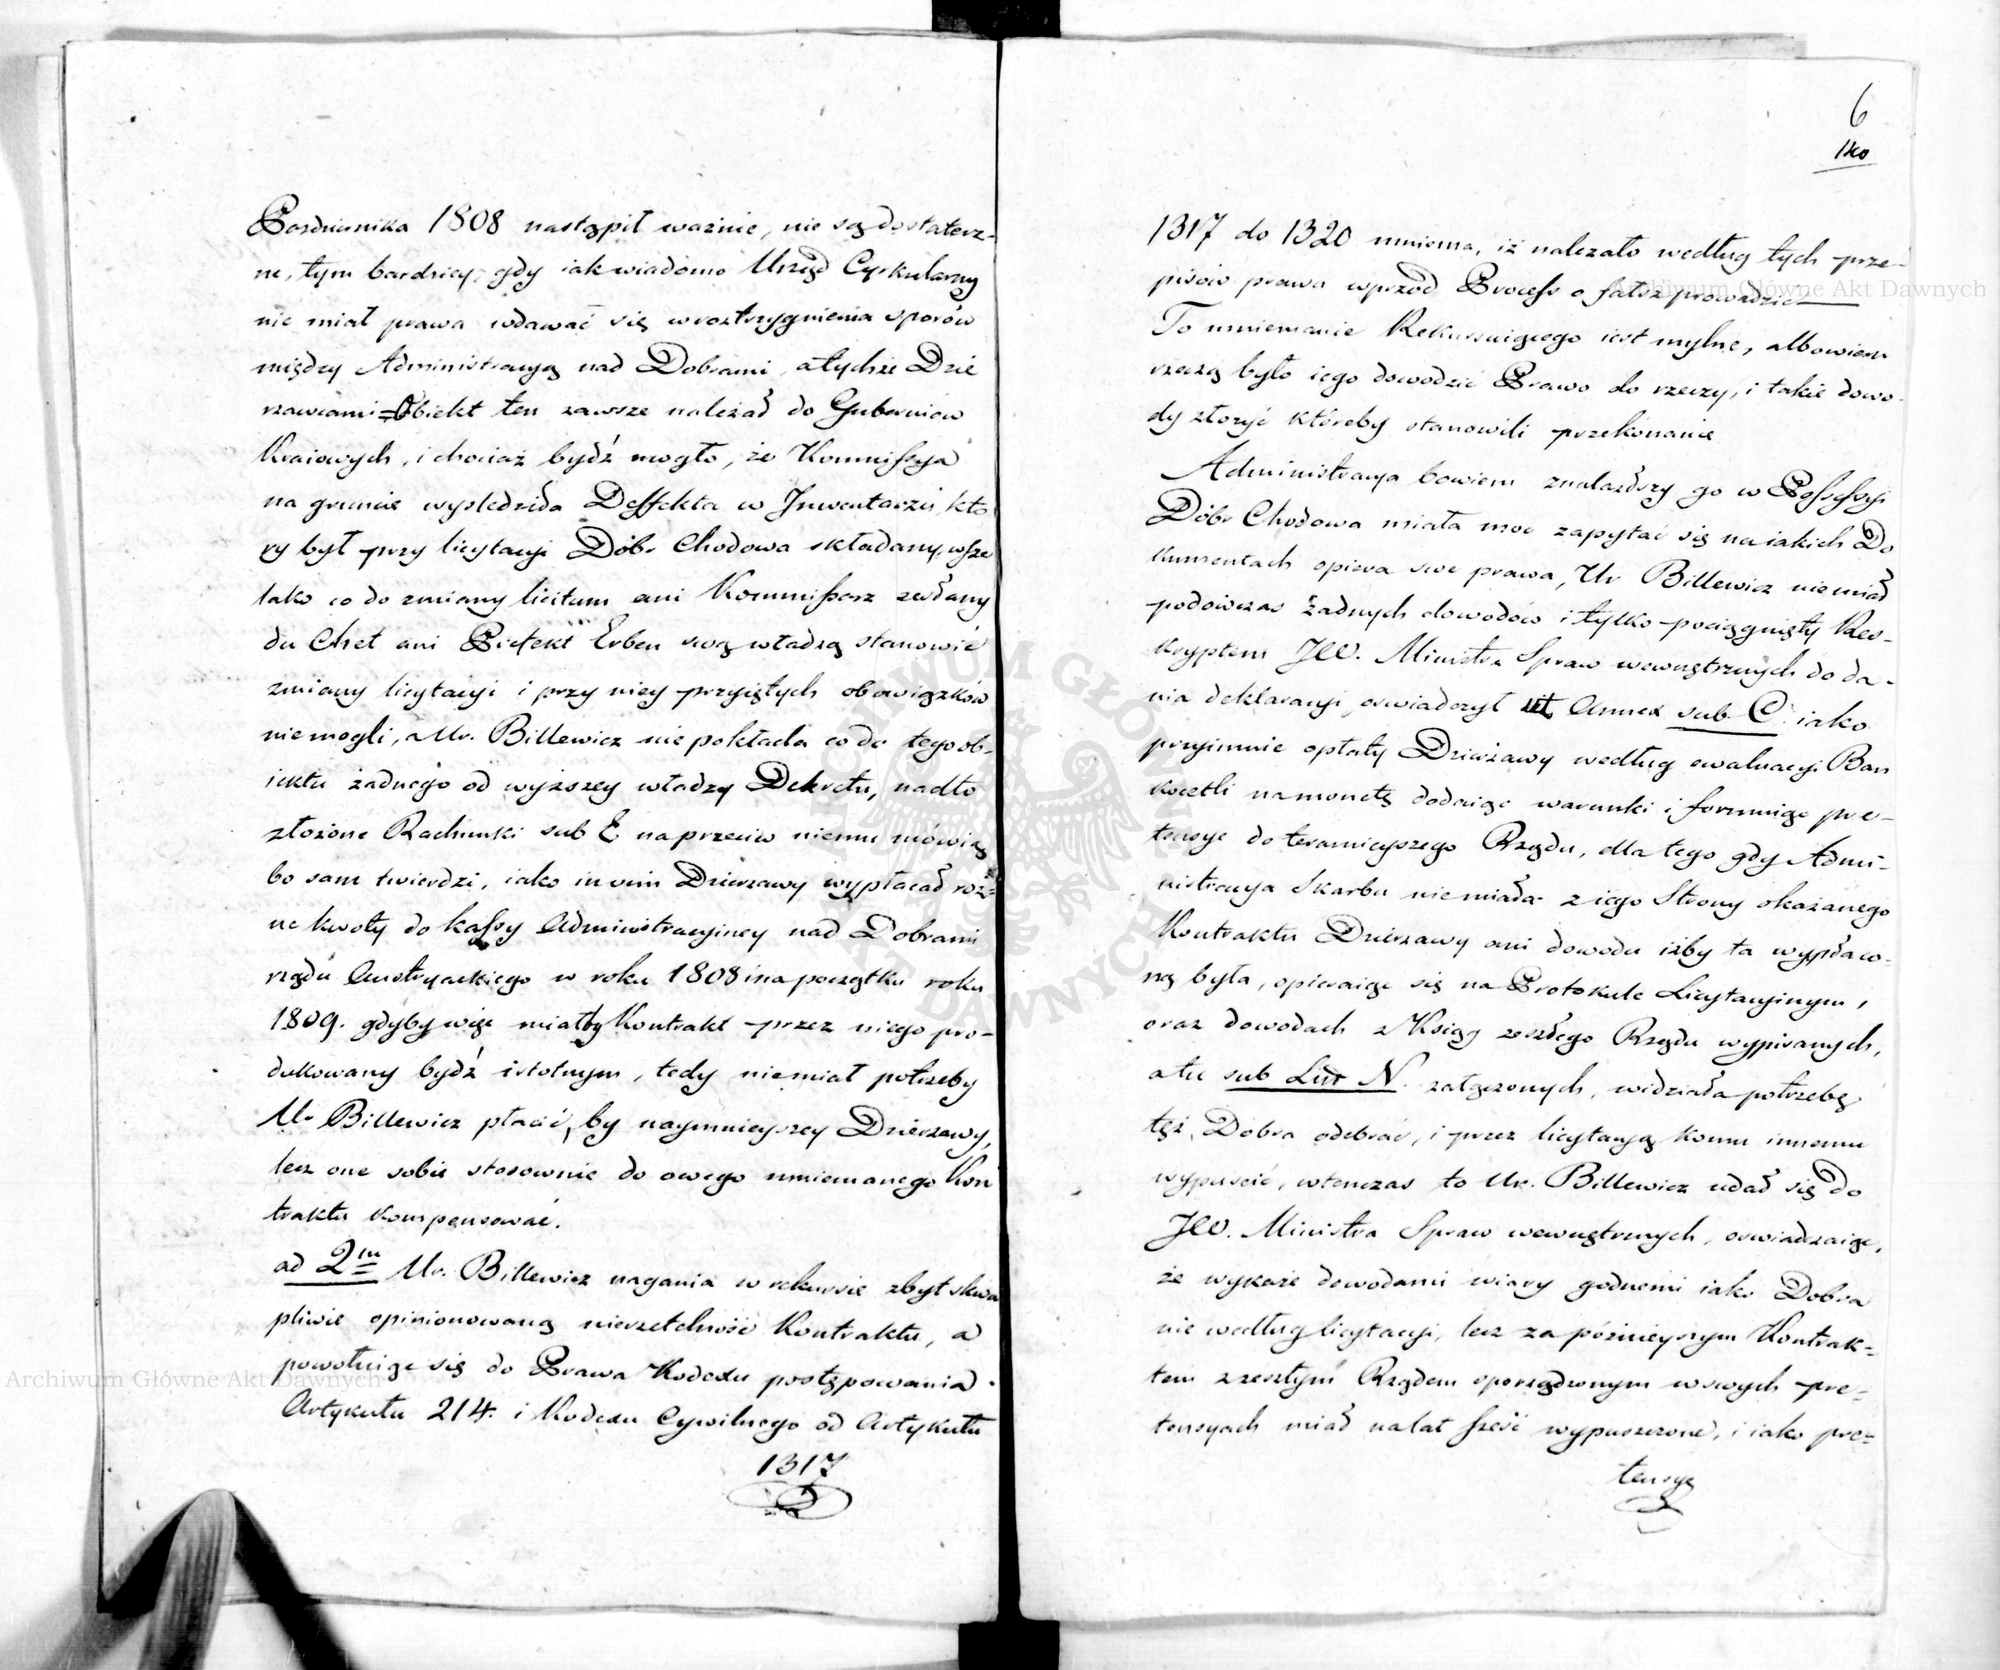 Pazdziernika 1808 nastąpił ważnie, nie są dostatecz-
ne, tym bardziey, gdy iak wiadomo Urząd Cyrkularny
nie miał prawa wdawać się w roztrzygnienia sporów
między Administracyą nad Dobrami, a tychże Dzie
rzawcami = Obiekt ten zawsze należał do Guberniow
Kraiowych, i chociaż bydź mogło, że Kommissya
na gruncie wysledziła Deffekta w Inwentarzu, kto
ry był przy licytacyi Dóbr Chodowa składany, wsze
lako co do zmiany licitum ani Kommissarz zesłany
du Chet ani Prefekt Erben swą władzą stanowić
zmiany licytacyi i przy niey przyiętych obowiązków
niemogli, a Ur. Billewicz niepokłada co do tego ob-
iektu żadnego od wyższey władzy Dekretu, nadto
złożone Rachunki sub E naprzeciw niemu mówią
bo sam twierdzi, iako in vim Dzierzawy wypłacał roż=
ne kwoty do kassy Administracyiney nad Dobrami
rządu Austryackiego w roku 1808 i na początku roku
1809. gdyby więc miałby Kontrakt przez niego pro-
dukowany bydź istotnym, tedy niemiał potrzeby
Ur. Billewicz płacić, by naymnieyszey Dzierzawy,
lecz one sobie stosownie do owego mniemanego Kon
traktu kompensować.
ad 2um Ur. Billewicz nagania w rekursie zbyt skwa
pliwie opinionowaną nierzetelność Kontraktu, a
powołuiąc się do Prawa Kodexu postępowania
Artykułu 214. i Kodexu Cywilnego od Artykułu
1317
6
140
1317 do 1320 mniema, iż należało według tych prze-
pisów prawa wprzód Process o fałsz prowadzić
To mniemanie Rekursuiącego iest mylne, albowiem
rzeczą było iego dowodzić Prawo do rzeczy, i takie dowo-
dy złożyć któreby stanowili przekonanie
Administracya bowiem znalazłszy go w Possessyi
Dóbr Chodowa miała moc zapytać się na iakich Do
kumentach opiera swe prawa, Ur Billewicz niemiał
podówczas żadnych dowodów i tylko pociągnięty Res-
kryptem JW. Ministra Spraw wewnętrznych do da-
nia deklaracyi, oswiadczył ut Annex sub C. iako
przyimuie opłaty Dzierżawy według ewaluacyi Ban
kocetli na monetę dodaiąc warunki i formuiąc pre-
tensye do teraznieyszego Rządu, dla tego gdy Admi-
nistracya Skarbu niemiała z iego Strony okazanego
Kontraktu Dzierzawy ani dowodu iżby ta wypłaco-
ną była, opieraiąc się na Protokule Licytacyinym,
oraz dowodach z Ksiąg zeszłego Rządu wypisanych,
a tu sub Litt N. załączonych, widziała potrzebę
też Dobra odebrać, i przez licytacyą komu innemu
wypuscić, wtenczas to Ur. Billewicz udał się do
JW. Ministra Spraw wewnętrznych, oswiadczaiąc,
że wykaże dowodami wiary godnemi iako Dobra
nie według licytacyi, lecz za pożnieyszym Kontrak=
tem z zeszłym Rządem sporządzonym w swych pre=
tensyach miał na lat sześć wypuszczone, i iako pre=
tensyą
Archiwum Główne Akt Dawnych
Archiwum Główne Akt Dawnych
ARCHIWUM GŁÓWNE AKT DAWNYCH